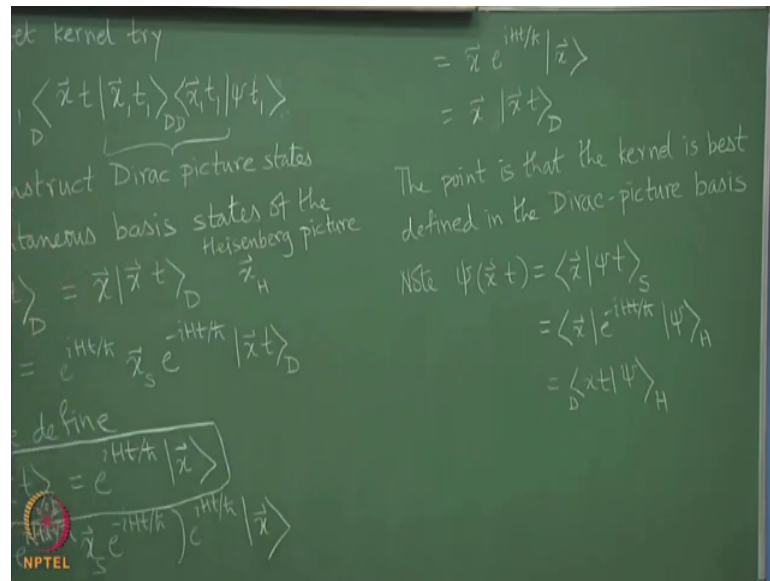 et kernel try
⟨x⃗ t|x⃗₁ t₁⟩ ⟨x⃗₁ t₁|ψ t₁⟩
D DD
nstruct Dirac picture states
ntaneous basis states of the
Heisenberg picture
t⟩_D = x⃗|x⃗ t⟩_D x⃗_H
= e^{iHt/ħ} x⃗_S e^{-iHt/ħ} |x⃗t⟩_D
e define
t⟩ = e^{iHt/ħ}|x⃗⟩
x⃗_S e^{-iHt/ħ}) e^{iHt/ħ}|x⃗⟩
= x⃗ e^{iHt/ħ}|x⃗⟩
= x⃗ |x⃗t⟩_D
The point is that the kernel is best
defined in the Dirac-picture basis
Note ψ(x⃗ t) = ⟨x⃗|ψ t⟩_S
= ⟨x⃗|e^{-iHt/ħ}|ψ⟩_H
= _D⟨xt|ψ⟩_H
NPTEL